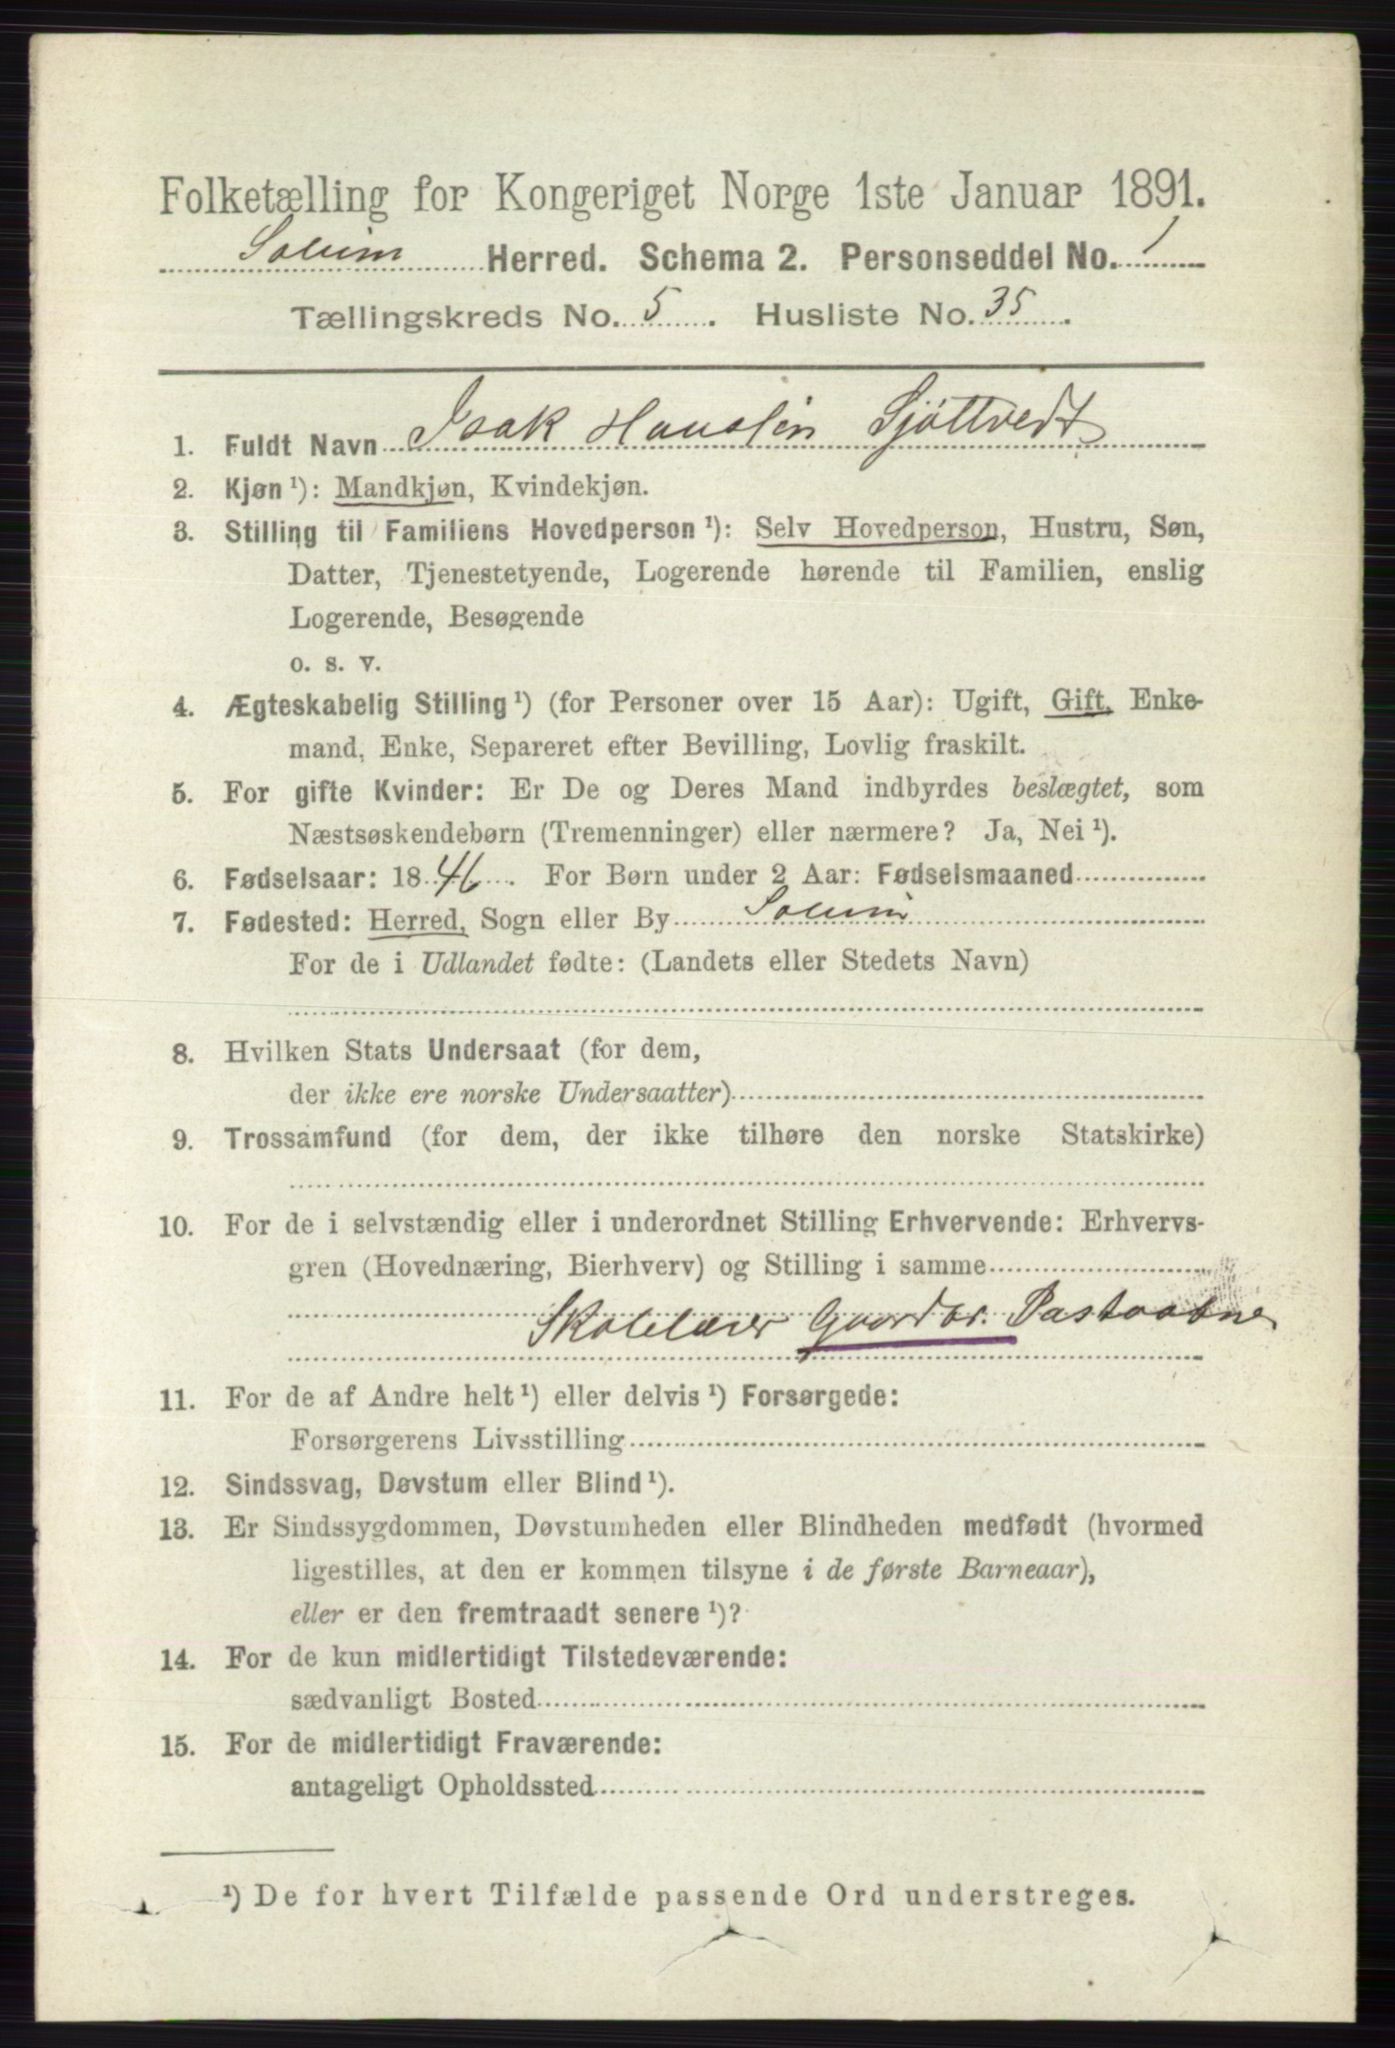 Folketælling for Kongeriget Norge 1ste Januar 1891.
Solum Herred. Schema 2. Personseddel No. 1
Tællingskreds No. 5. Husliste No. 35.
1. Fuldt Navn Isak Hansen Sjöttvedt
2. Kjøn ¹): Mandkjøn, Kvindekjøn.
3. Stilling til Familiens Hovedperson ¹): Selv Hovedperson, Hustru, Søn,
Datter, Tjenestetyende, Logerende hørende til Familien, enslig
Logerende, Besøgende
o. s. v.
4. Ægteskabelig Stilling ¹) (for Personer over 15 Aar): Ugift, Gift, Enke-
mand, Enke, Separeret efter Bevilling, Lovlig fraskilt.
5. For gifte Kvinder: Er De og Deres Mand indbyrdes beslægtet, som
Næstsøskendebørn (Tremenninger) eller nærmere? Ja, Nei ¹).
6. Fødselsaar: 1846. For Børn under 2 Aar: Fødselsmaaned
7. Fødested: Herred, Sogn eller By Solum
For de i Udlandet fødte: (Landets eller Stedets Navn)
8. Hvilken Stats Undersaat (for dem,
der ikke ere norske Undersaatter)
9. Trossamfund (for dem, der ikke tilhøre den norske Statskirke)
10. For de i selvstændig eller i underordnet Stilling Erhvervende: Erhvervs-
gren (Hovednæring, Bierhverv) og Stilling i samme
Skolelærer Gaardbr. Postaabne
11. For de af Andre helt ¹) eller delvis ¹) Forsørgede:
Forsørgerens Livsstilling
12. Sindssvag, Døvstum eller Blind ¹).
13. Er Sindssygdommen, Døvstumheden eller Blindheden medfødt (hvormed
ligestilles, at den er kommen tilsyne i de første Barneaar),
eller er den fremtraadt senere ¹)?
14. For de kun midlertidigt Tilstedeværende:
sædvanligt Bosted
15. For de midlertidigt Fraværende:
antageligt Opholdssted
¹) De for hvert Tilfælde passende Ord understreges.